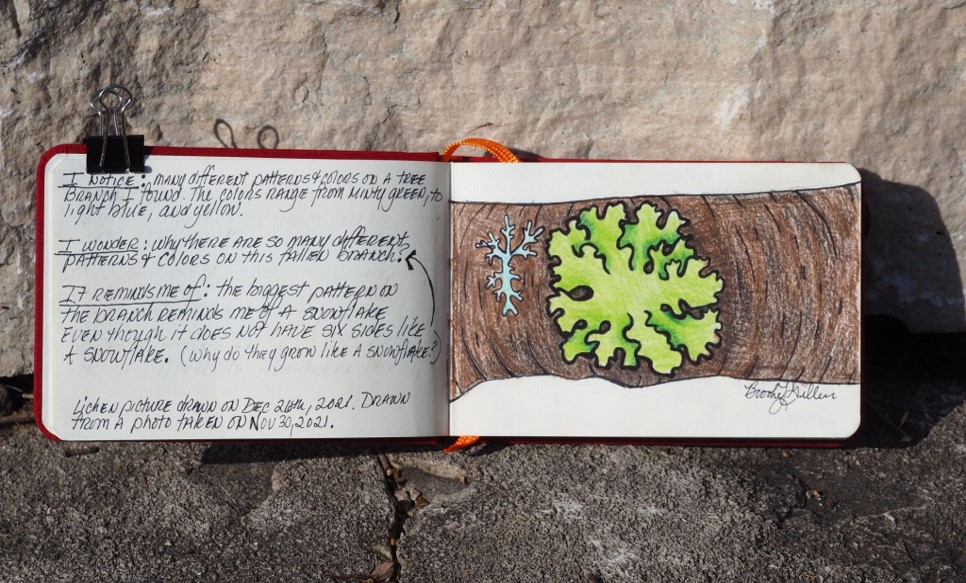 I NOTICE: MANY DIFFERENT PATTERNS & COLORS ON A TREE
BRANCH I FOUND. THE COLORS RANGE FROM MINTY GREEN, TO
LIGHT BLUE, AND YELLOW.
I WONDER: WHY THERE ARE SO MANY DIFFERENT
PATTERNS & COLORS ON THIS FALLEN BRANCH?
IT REMINDS ME OF: THE BIGGEST PATTERN ON
THE BRANCH REMINDS ME OF A SNOWFLAKE
EVEN THOUGH IT DOES NOT HAVE SIX SIDES LIKE
A SNOWFLAKE. (WHY DO THEY GROW LIKE A SNOWFLAKE?)
LICHEN PICTURE DRAWN ON DEC 26TH, 2021. DRAWN
FROM A PHOTO TAKEN ON NOV 30, 2021.